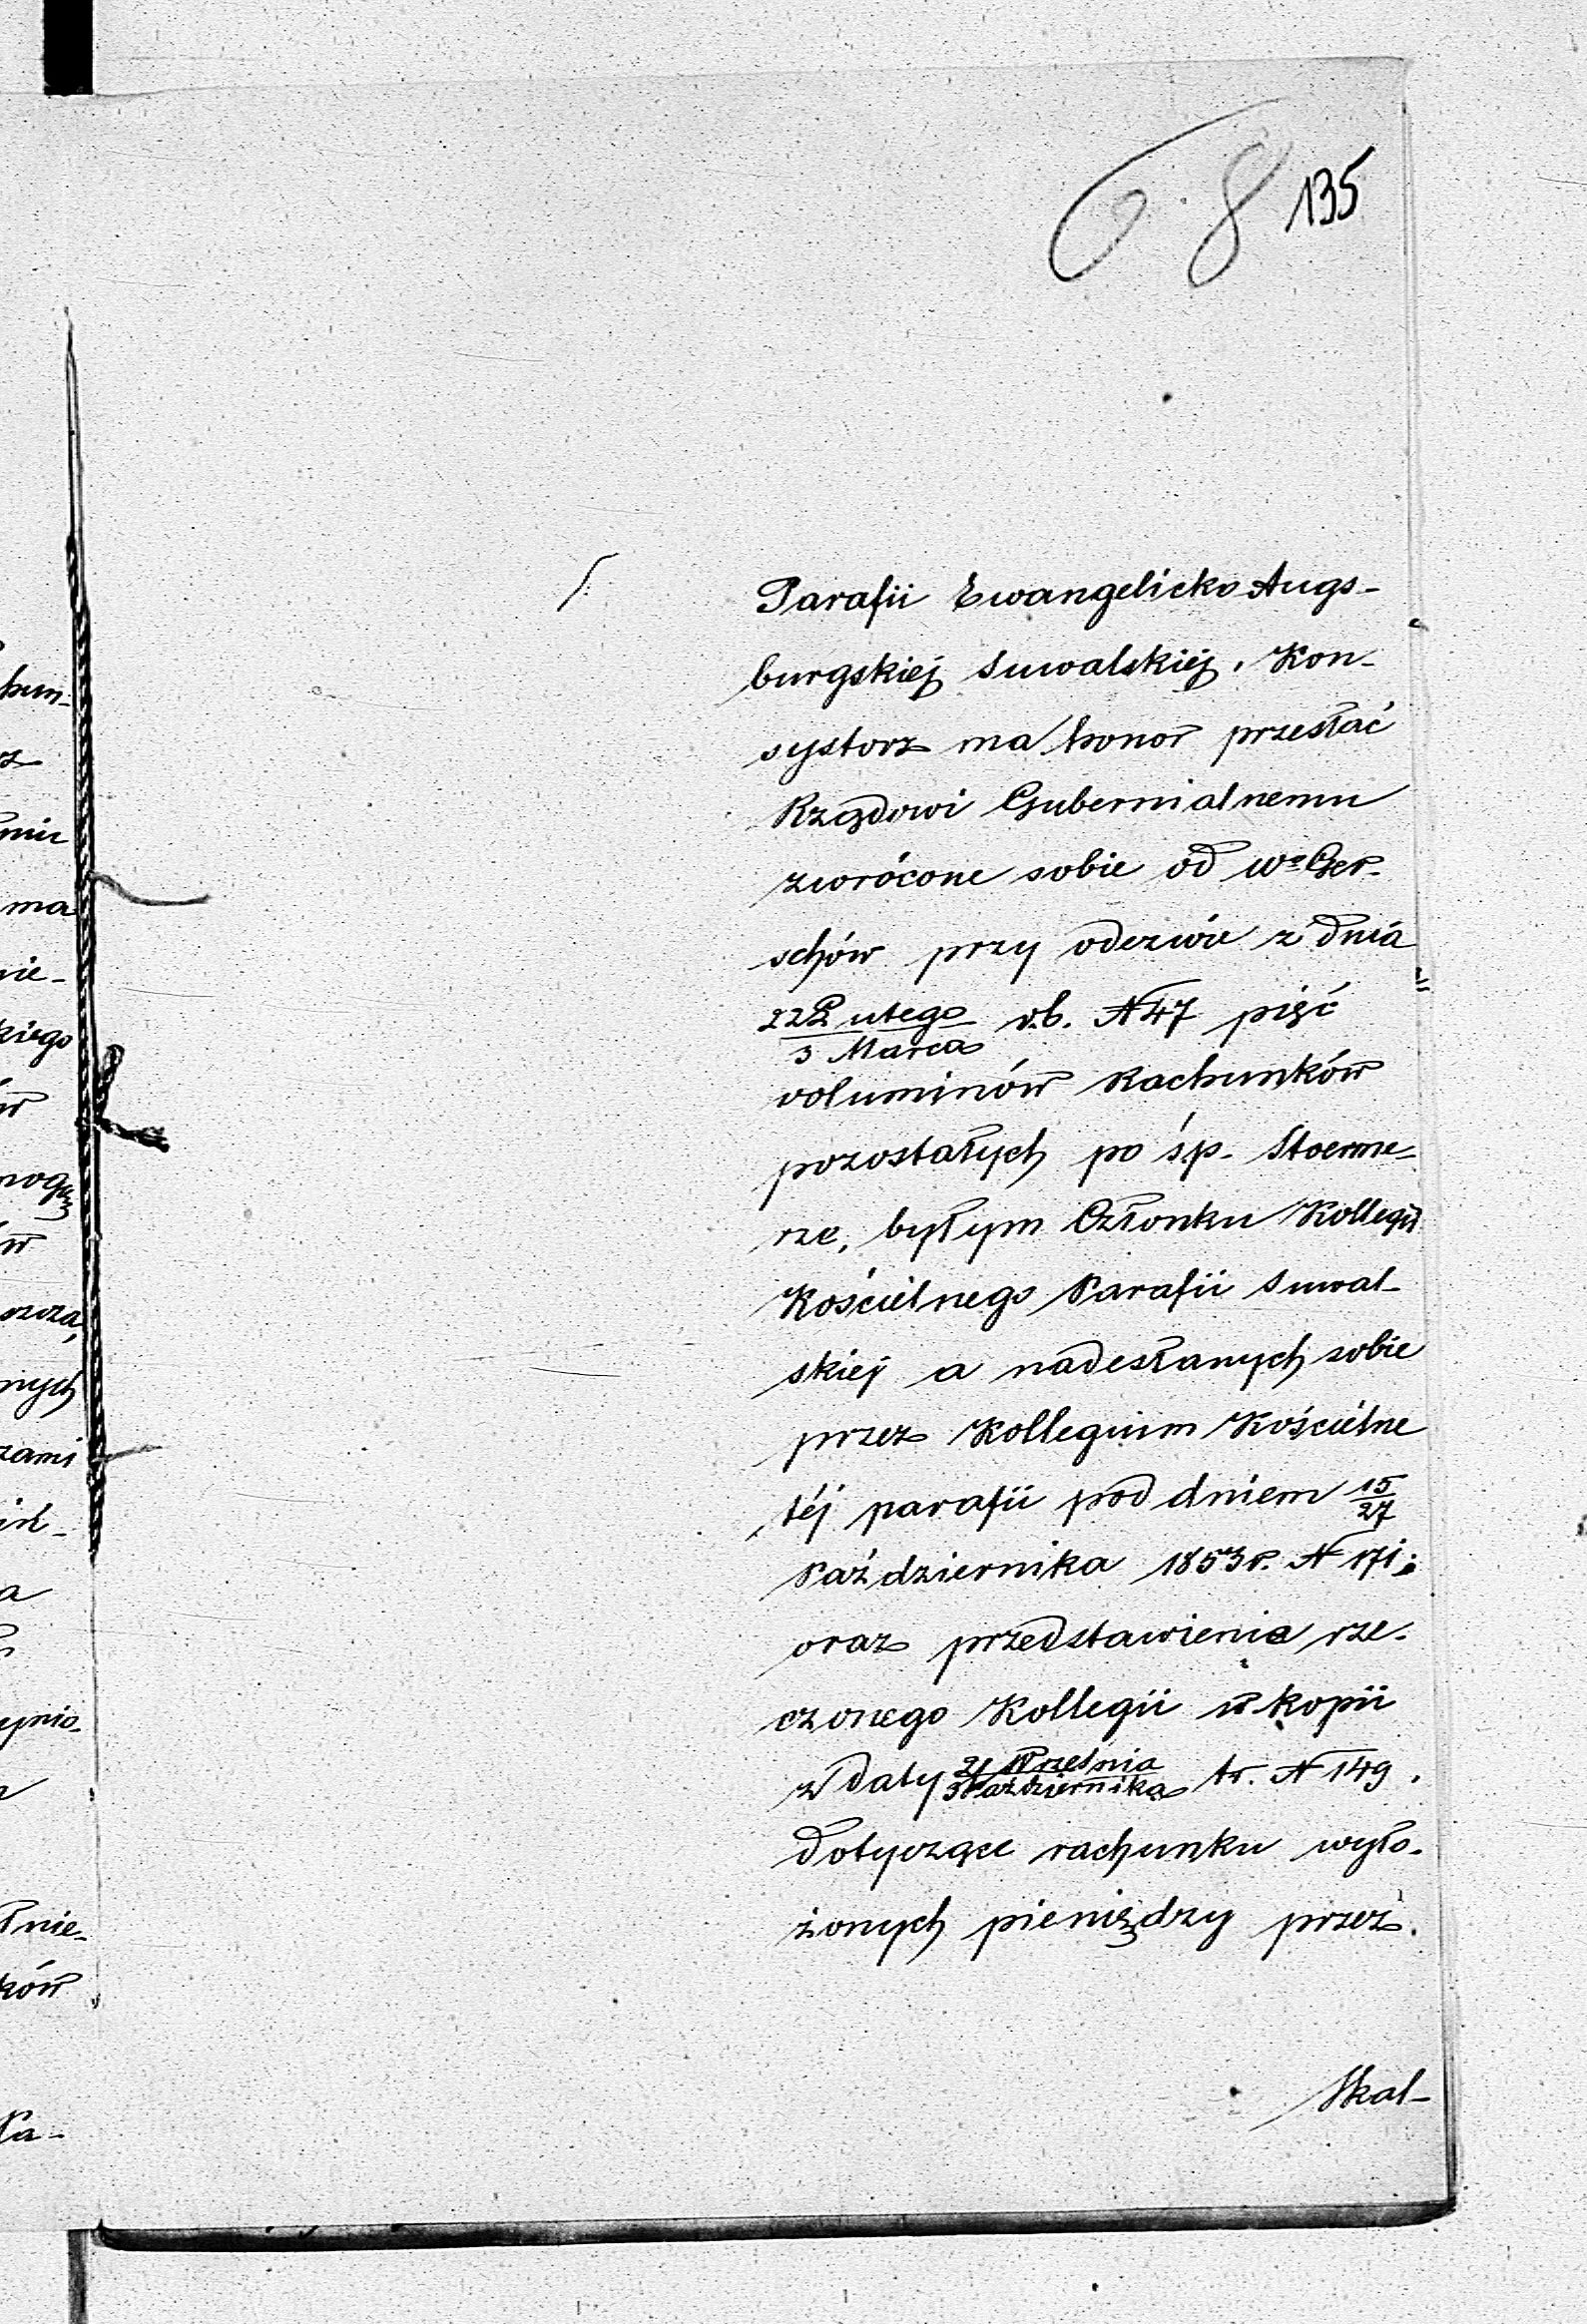 6. 8 135
Parafii Ewangelicko Augs-
burgskiej Suwalskiej. Kon-
systorz ma honor przesłać
Rządowi Gubernialnemu
zwrócone sobie od Wo Ger-
schów przy odezwie z dnia
22 Lutego / 3 Marca r.b. N 47 pięć
voluminów Rachunków
pozostałych po ś.p. Stoerme-
rze, byłym Członku Kollegii
Kościelnego Parafii Suwal-
skiej a nadesłanych sobie
przez Kollegium Kościelne
téj parafii pod dniem 15/27
Października 1853 r. N 171;
oraz przedstawienie rze-
czonego Kollegii w kopii
z daty 21 Września / 3 Października t.r. N 149.
dotyczące rachunku wyło-
żonych pieniędzy przez
Skal-
hun-
rz
ma
nie-
kiego
ów
mogą
szcza,
nych
zami
a
ynio-
łnie-
ków
Pa-